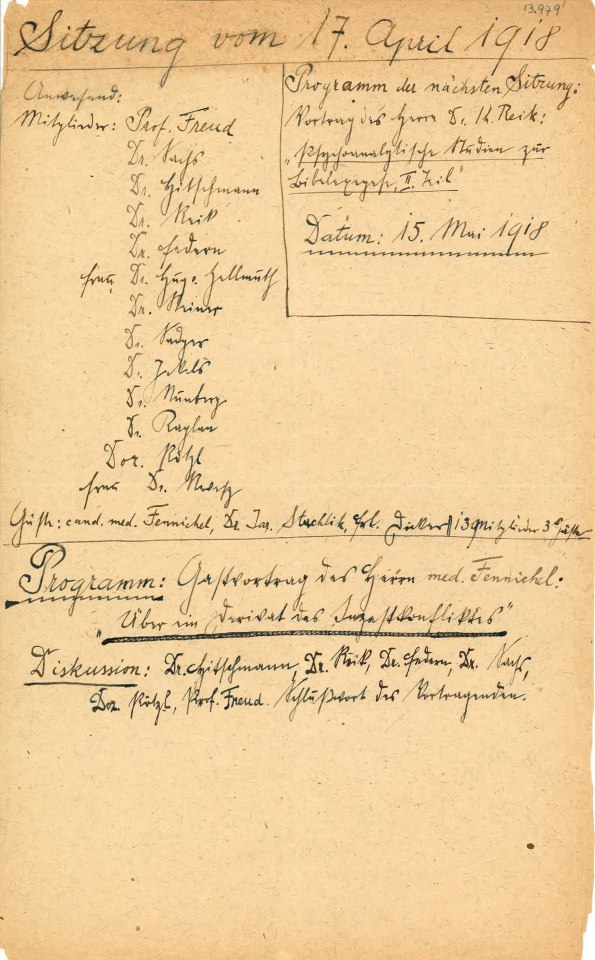 13.979
Sitzung vom 17. April 1918
Anwesend:
Mitglieder: Prof. Freud
Dr. Sachs
Dr. Hitschmann
Dr. Reik
Dr. Federn
Frau Dr. Hug-Hellmuth
Dr. Steiner
Dr. Sadger
Dr. Jekels
Dr. Nunberg
Dr. Kaplan
Doz. Pötzl
Frau Dr.
Gäste: cand. med. Fennichel, Dr. Frl. Dicker 13 Mitglieder 3 Gäste
Programm der nächsten Sitzung:
Vortrag des Herrn Dr. Th. Reik:
„Psychoanalytische Studien zur
Bibelexegese, II. Teil“
Datum: 15. Mai 1918
Programm: Gastvortrag des Herrn med. Fennichel:
„Über ein Derivat des Inzestkonfliktes“
Diskussion: Dr. Hitschmann, Dr. Reik, Dr. Federn, Dr. Sachs,
Doz. Pötzl, Prof. Freud. Schlußwort des Vortragenden.